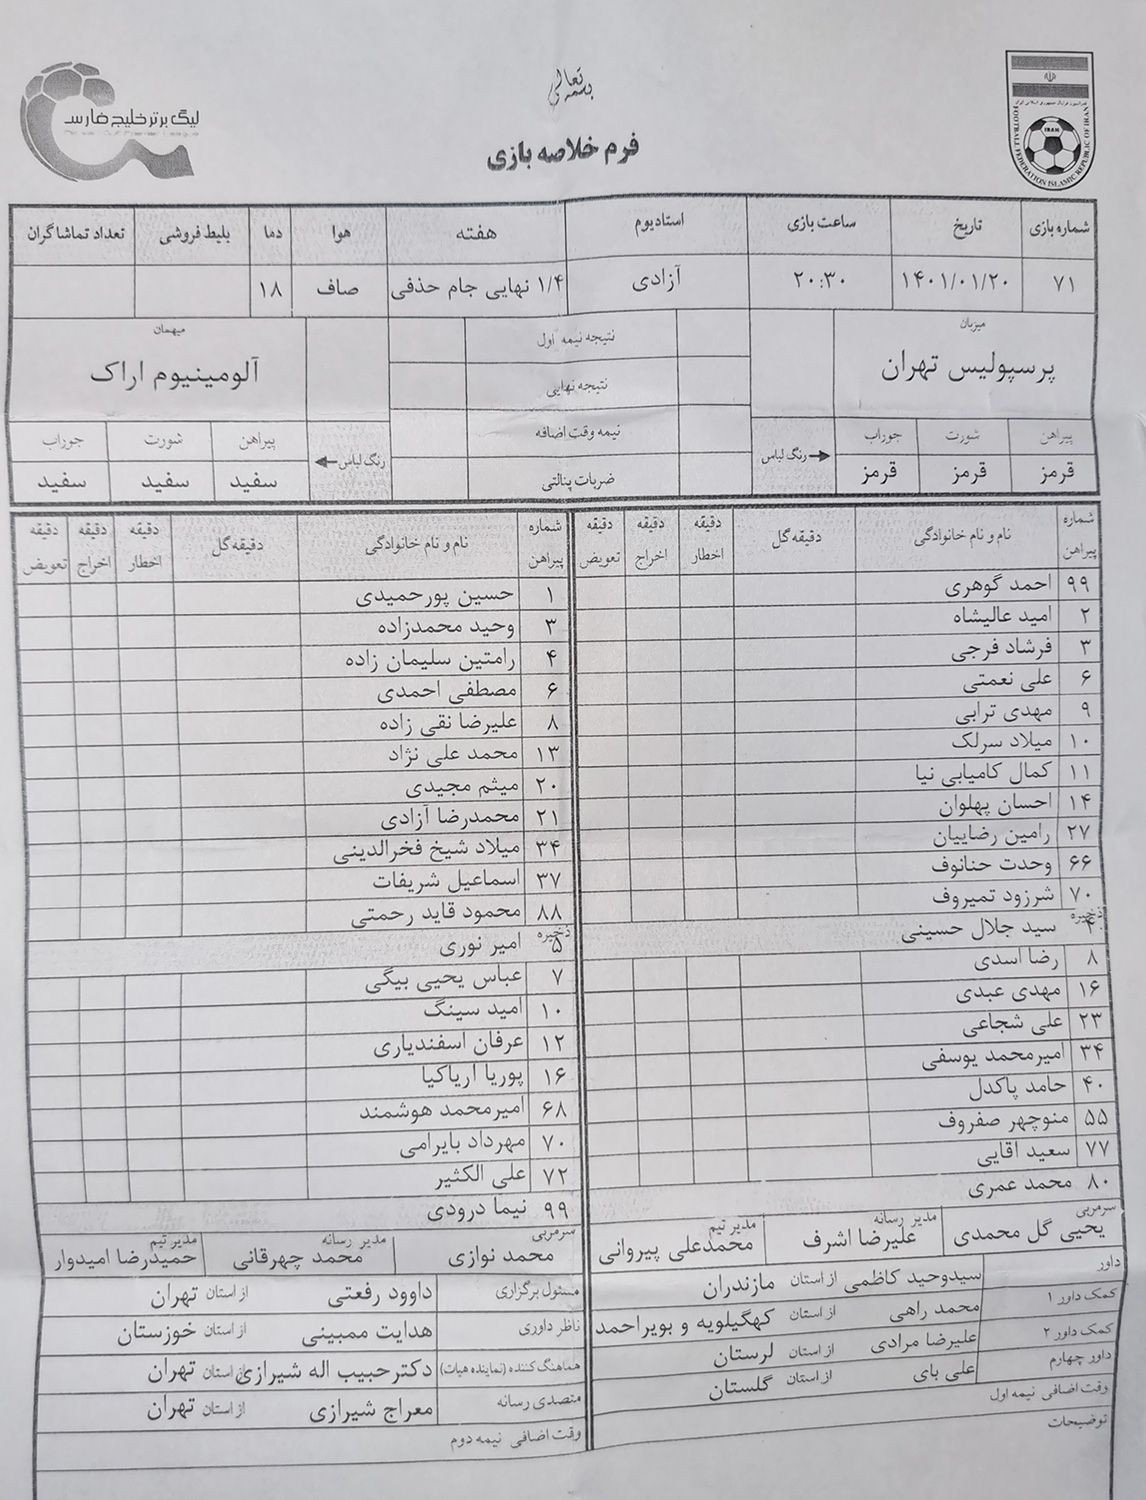 بسمه تعالی
لیگ برتر خلیج فارس
IRAN
FOOTBALL FEDERATION ISLAMIC REPUBLIC OF IRAN
فرم خلاصه بازی
شماره بازی تاریخ ساعت بازی استادیوم هفته هوا دما بلیط فروشی تعداد تماشاگران
۷۱ ۱۴۰۱/۰۱/۲۰ ۲۰:۳۰ آزادی ۱/۴ نهایی جام حذفی صاف ۱۸
میزبان نتیجه نیمه اول میهمان
پرسپولیس تهران نتیجه نهایی آلومینیوم اراک
پیراهن شورت جوراب نیمه وقت اضافه پیراهن شورت جوراب
قرمز قرمز قرمز رنگ لباس ضربات پنالتی رنگ لباس سفید سفید سفید
شماره پیراهن نام و نام خانوادگی دقیقه گل دقیقه اخطار دقیقه اخراج دقیقه تعویض
۹۹ احمد گوهری
۲ امید عالیشاه
۳ فرشاد فرجی
۶ علی نعمتی
۹ مهدی ترابی
۱۰ میلاد سرلک
۱۱ کمال کامیابی نیا
۱۴ احسان پهلوان
۲۷ رامین رضاییان
۶۶ وحدت حنانوف
۷۰ شرزود تمیروف
ذخیره
۴ سید جلال حسینی
۸ رضا اسدی
۱۶ مهدی عبدی
۲۳ علی شجاعی
۳۴ امیرمحمد یوسفی
۴۰ حامد پاکدل
۵۵ منوچهر صفروف
۷۷ سعید اقایی
۸۰ محمد عمری
سرمربی یحیی گل محمدی مدیر رسانه علیرضا اشرف مدیر تیم محمدعلی پیروانی
داور سیدوحید کاظمی از استان مازندران
کمک داور ۱ محمد راهی از استان کهگیلویه و بویراحمد
کمک داور ۲ علیرضا مرادی از استان لرستان
داور چهارم علی بای از استان گلستان
وقت اضافی نیمه اول
توضیحات
شماره پیراهن نام و نام خانوادگی دقیقه گل دقیقه اخطار دقیقه اخراج دقیقه تعویض
۱ حسین پورحمیدی
۳ وحید محمدزاده
۴ رامتین سلیمان زاده
۶ مصطفی احمدی
۸ علیرضا نقی زاده
۱۳ محمد علی نژاد
۲۰ میثم مجیدی
۲۱ محمدرضا آزادی
۳۴ میلاد شیخ فخرالدینی
۳۷ اسماعیل شریفات
۸۸ محمود قاید رحمتی
ذخیره
۵ امیر نوری
۷ عباس یحیی بیگی
۱۰ امید سینگ
۱۲ عرفان اسفندیاری
۱۶ پوریا اریاکیا
۶۸ امیرمحمد هوشمند
۷۰ مهرداد بایرامی
۷۲ علی الکثیر
۹۹ نیما درودی
سرمربی محمد نوازی مدیر رسانه محمد چهرقانی مدیر تیم حمیدرضا امیدوار
مسئول برگزاری داوود رفعتی از استان تهران
ناظر داوری هدایت ممبینی از استان خوزستان
هماهنگ کننده (نماینده هیات) دکتر حبیب اله شیرازی از استان تهران
متصدی رسانه معراج شیرازی از استان تهران
وقت اضافی نیمه دوم